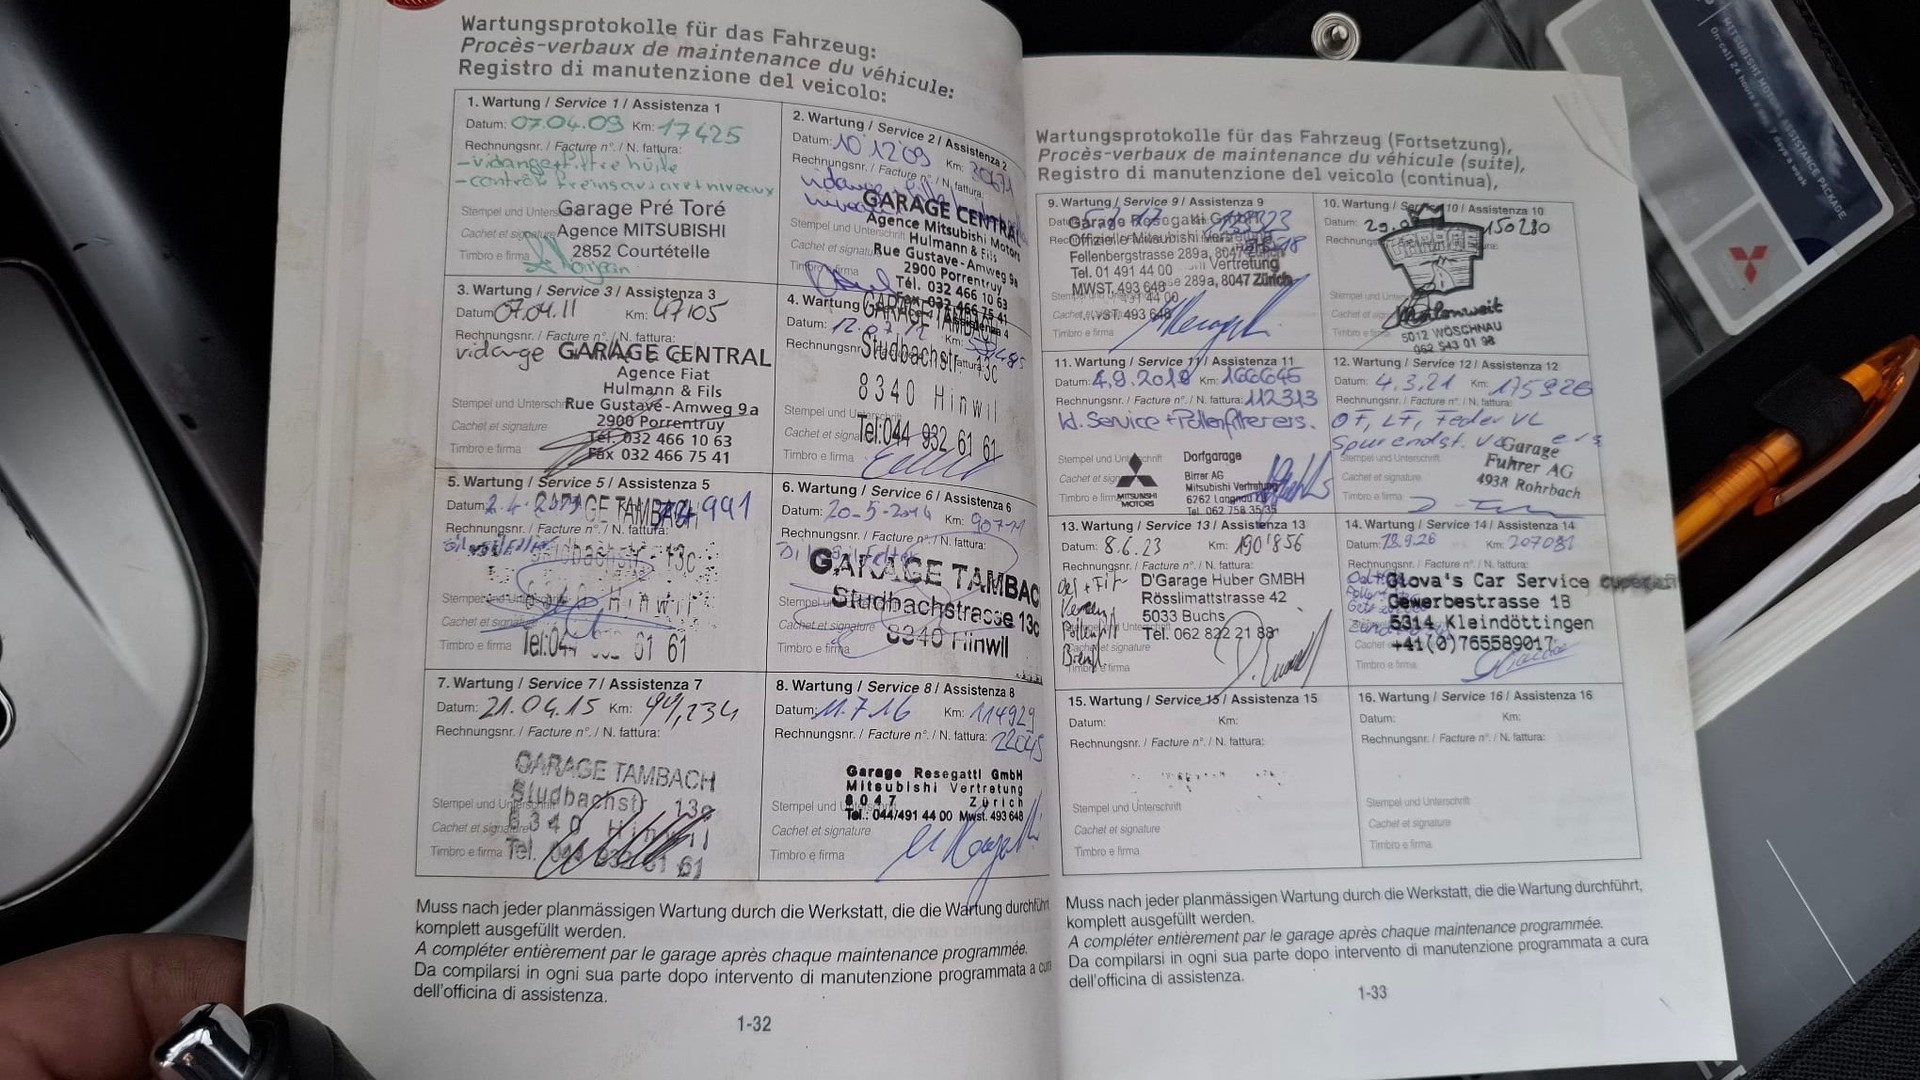 Wartungsprotokolle für das Fahrzeug:
Procès-verbaux de maintenance du véhicule:
Registro di manutenzione del veicolo:
1. Wartung / Service 1 / Assistenza 1
Datum: 07.04.09 Km: 17425
Rechnungsnr. / Facture n°. / N. fattura:
- vidange + filtre huile
- contrôle freins av/ar et niveaux
Stempel und Unterschrift
Garage Pré Toré
Cachet et signature
Agence MITSUBISHI
2852 Courtételle
Timbro e firma
2. Wartung / Service 2 / Assistenza 2
Datum: 10 12 09 Km:
Rechnungsnr. / Facture n°. / N. fattura:
vidange
GARAGE CENTRAL
Agence Mitsubishi Motors
Hulmann & Fils
Rue Gustave-Amweg 9a
2900 Porrentruy
Tél. 032 466 10 63
Fax 032 466 75 41
Stempel und Unterschrift
Cachet et signature
Timbro e firma
3. Wartung / Service 3 / Assistenza 3
Datum 07.04.11 Km: 47105
Rechnungsnr. / Facture n°. / N. fattura:
vidange GARAGE CENTRAL
Agence Fiat
Hulmann & Fils
Rue Gustave-Amweg 9a
2900 Porrentruy
Tél. 032 466 10 63
Fax 032 466 75 41
Stempel und Unterschrift
Cachet et signature
Timbro e firma
4. Wartung
Datum: 12.07.12 Km:
GARAGE TAMBACH
Studbachstr. 13c
8340 Hinwil
Tel:044 932 61 61
Stempel und Unterschrift
Cachet et signature
Timbro e firma
5. Wartung / Service 5 / Assistenza 5
Datum:
GARAGE TAMBACH
Rechnungsnr. / Facture n°. / N. fattura:
Studbachstr. 13c
8340 Hinwil
Tel:044 932 61 61
Stempel und Unterschrift
Cachet et signature
Timbro e firma
6. Wartung / Service 6 / Assistenza 6
Datum: 20-5-2014 Km:
Rechnungsnr. / Facture n°. / N. fattura:
GARAGE TAMBACH
Studbachstrasse 13c
8340 Hinwil
Stempel und Unterschrift
Cachet et signature
Timbro e firma
7. Wartung / Service 7 / Assistenza 7
Datum: 21.04.15 Km: 99,234
Rechnungsnr. / Facture n°. / N. fattura:
GARAGE TAMBACH
Studbachstr 13c
8340 Hinwil
Tel. 044 932 61 61
Stempel und Unterschrift
Cachet et signature
Timbro e firma
8. Wartung / Service 8 / Assistenza 8
Datum: 11.7.16 Km: 114929
Rechnungsnr. / Facture n°. / N. fattura: 22045
Garage Resegatti GmbH
Mitsubishi Vertretung
8047 Zürich
Tel.: 044/491 44 00 Mwst. 493 648
Stempel und Unterschrift
Cachet et signature
Timbro e firma
Muss nach jeder planmässigen Wartung durch die Werkstatt, die die Wartung durchführt,
komplett ausgefüllt werden.
A compléter entièrement par le garage après chaque maintenance programmée.
Da compilarsi in ogni sua parte dopo intervento di manutenzione programmata a cura
dell'officina di assistenza.
1-32
Wartungsprotokolle für das Fahrzeug (Fortsetzung),
Procès-verbaux de maintenance du véhicule (suite),
Registro di manutenzione del veicolo (continua),
9. Wartung / Service 9 / Assistenza 9
Offizielle Mitsubishi Vertretung
Fellenbergstrasse 289a, 8047 Zürich
Tel. 01 491 44 00
MWST. 493 648
Timbro e firma
10. Wartung / Service 10 / Assistenza 10
Datum: 150280
GARAGE
5012 WÖSCHNAU
062 543 01 98
Stempel und Unterschrift
Cachet et signature
Timbro e firma
11. Wartung / Service 11 / Assistenza 11
Datum: 4.9.2018 Km: 166645
Rechnungsnr. / Facture n°. / N. fattura: 112313
kl. Service + Pollenfilter ers.
Stempel und Unterschrift
Cachet et signature
Timbro e firma
MITSUBISHI
MOTORS
Dorfgarage
Birrer AG
Mitsubishi Vertretung
6262 Langnau
Tel. 062 758 35 35
12. Wartung / Service 12 / Assistenza 12
Datum: 4.3.21 Km: 175926
Rechnungsnr. / Facture n°. / N. fattura:
OF, LF, Feder VL
Spurendst. ers
Garage
Fuhrer AG
4938 Rohrbach
Stempel und Unterschrift
Cachet et signature
Timbro e firma
13. Wartung / Service 13 / Assistenza 13
Datum: 8.6.23 Km: 190'856
Rechnungsnr. / Facture n°. / N. fattura:
D'Garage Huber GMBH
Rösslimattstrasse 42
5033 Buchs
Tel. 062 822 21 88
Cachet et signature
Timbro e firma
14. Wartung / Service 14 / Assistenza 14
Datum: Km: 207031
Rechnungsnr. / Facture n°. / N. fattura:
Glova's Car Service
Gewerbestrasse 18
5314 Kleindöttingen
+41(0)765589017
Timbro e firma
15. Wartung / Service 15 / Assistenza 15
Datum: Km:
Rechnungsnr. / Facture n°. / N. fattura:
Stempel und Unterschrift
Cachet et signature
Timbro e firma
16. Wartung / Service 16 / Assistenza 16
Datum: Km:
Rechnungsnr. / Facture n°. / N. fattura:
Stempel und Unterschrift
Cachet et signature
Timbro e firma
Muss nach jeder planmässigen Wartung durch die Werkstatt, die die Wartung durchführt,
komplett ausgefüllt werden.
A compléter entièrement par le garage après chaque maintenance programmée.
Da compilarsi in ogni sua parte dopo intervento di manutenzione programmata a cura
dell'officina di assistenza.
1-33
MITSUBISHI MOTORS ASSISTANCE PACKAGE.
On-call 24 hours a day 7 days a week